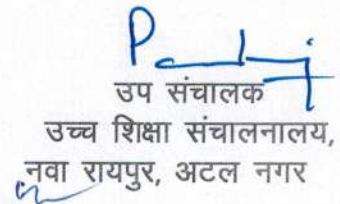 उप संचालक
उच्च शिक्षा संचालनालय,
नवा रायपुर, अटल नगर